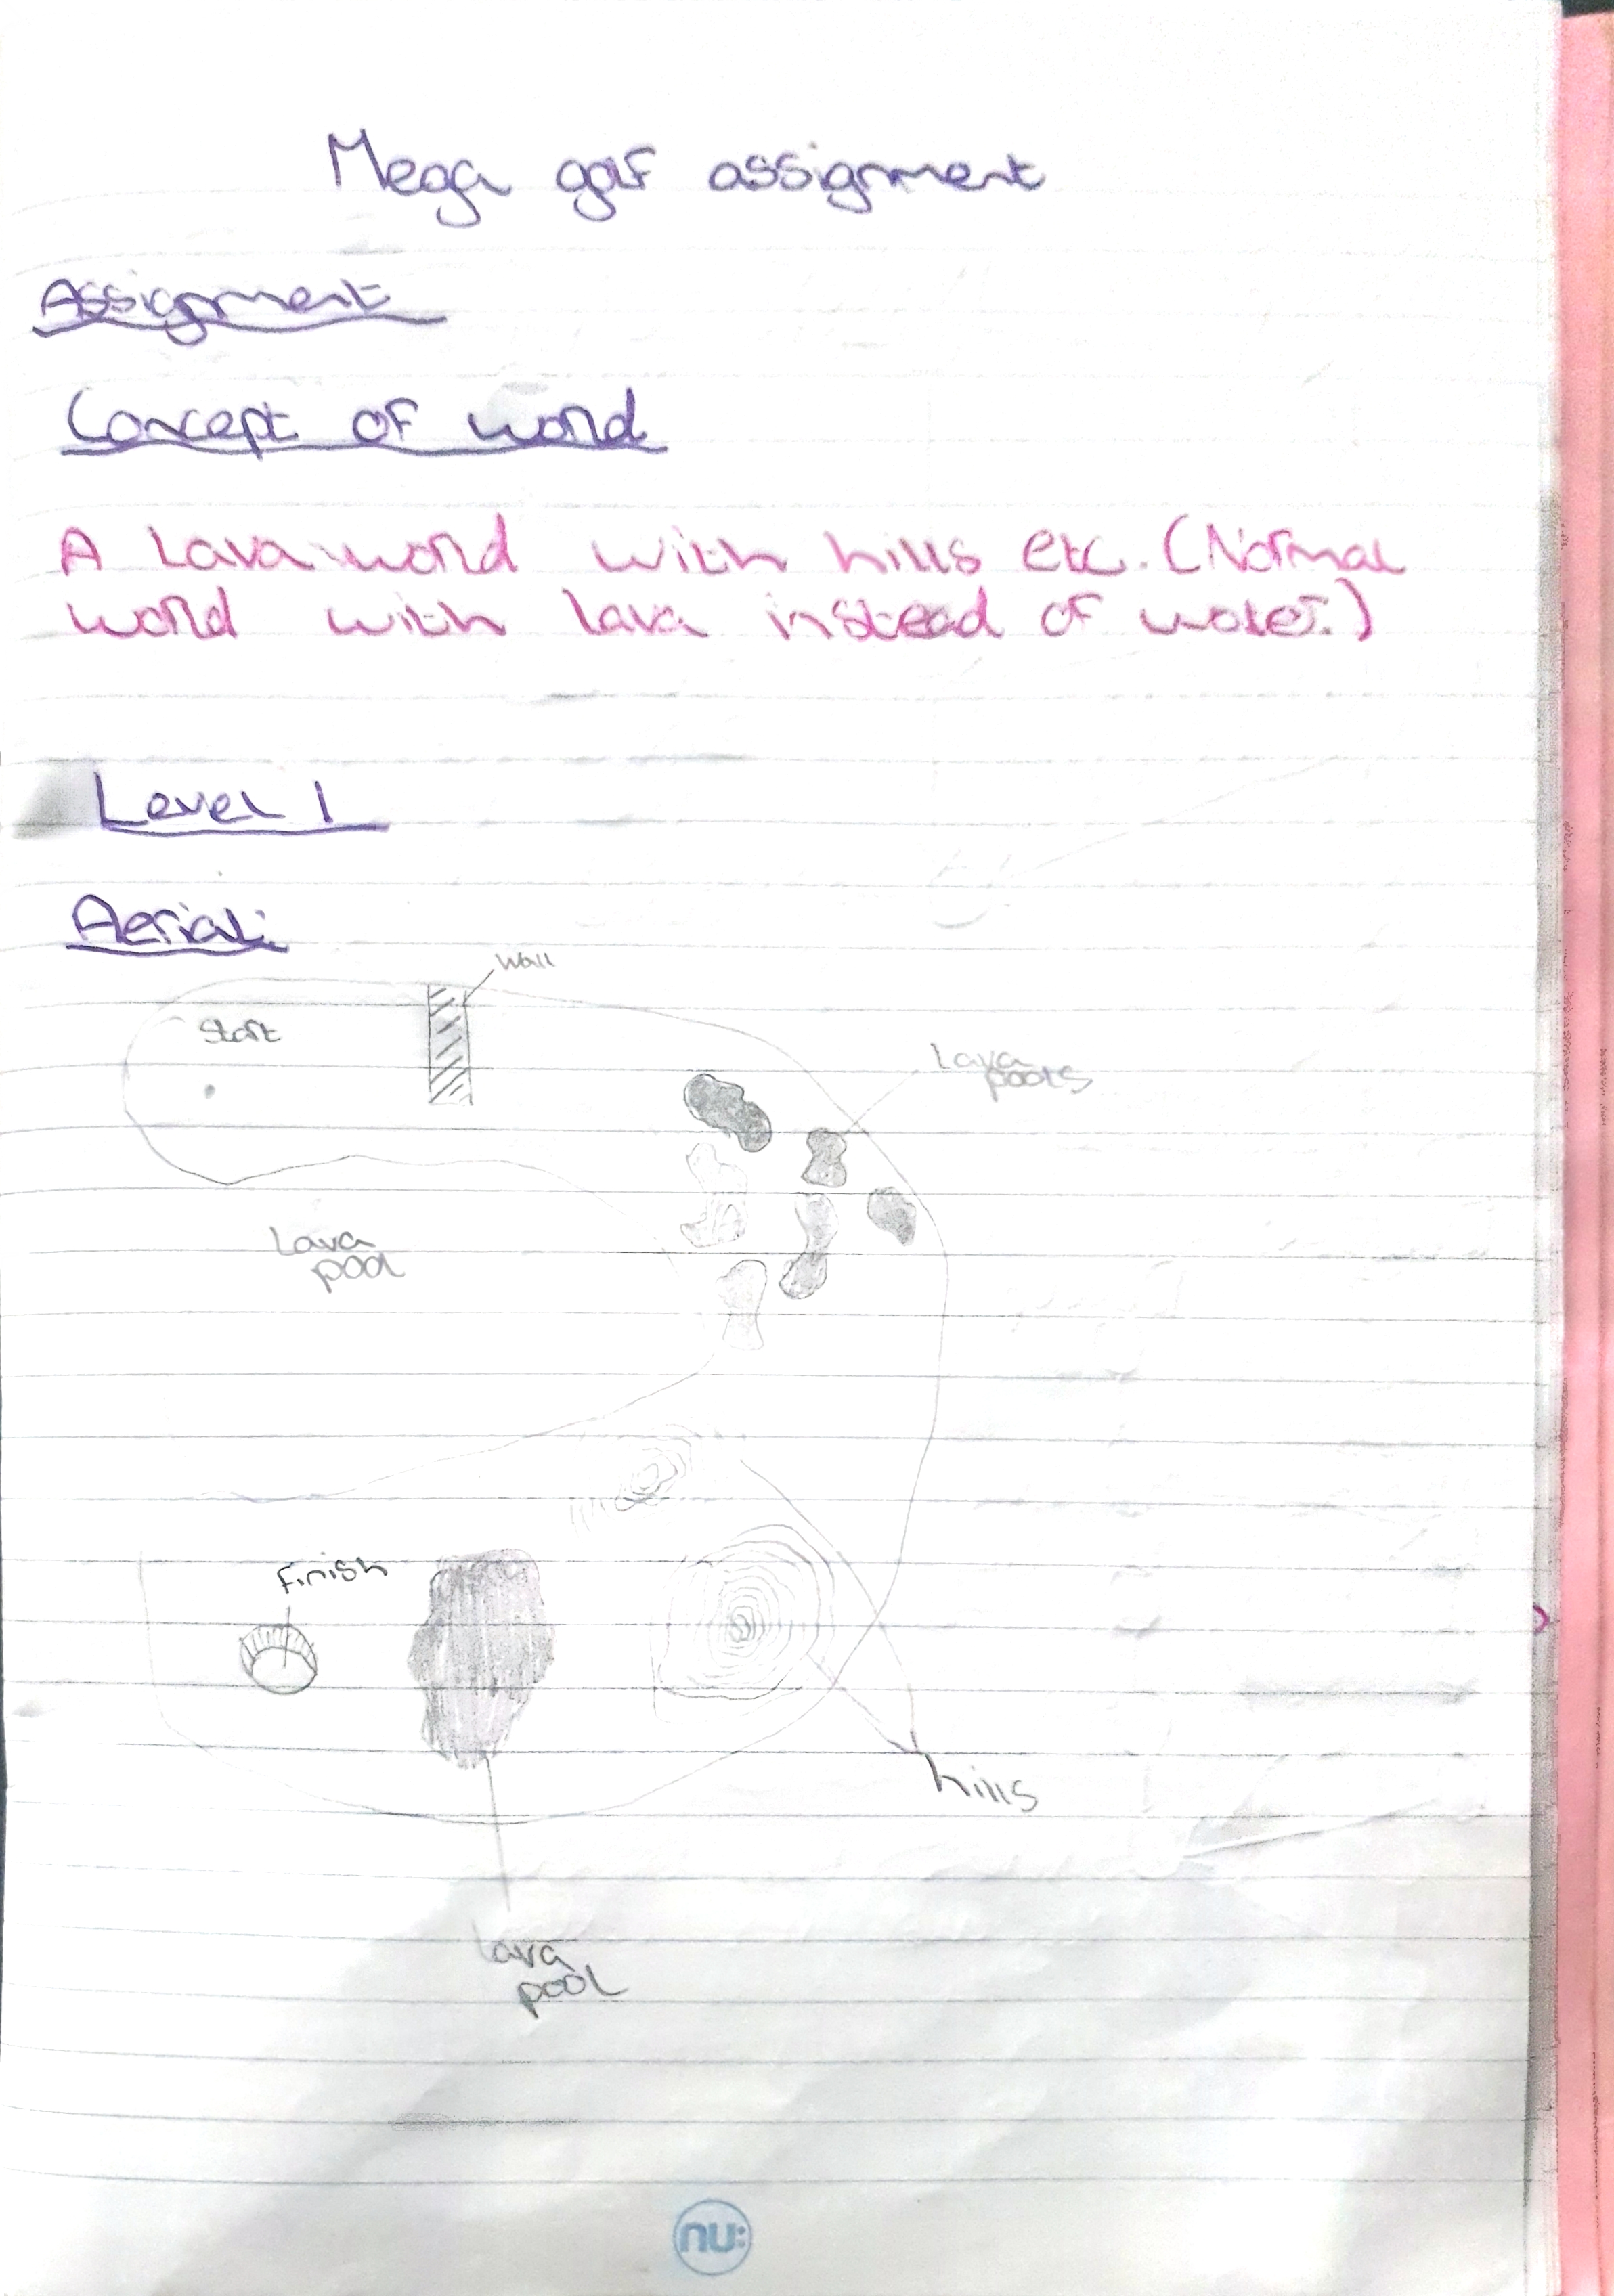 Mega golf assignment
Assignment
Concept of world
A Lava world with hills etc. (Normal
world with lava instead of water.)
Level 1
Aerial:
Wall
Start
Lava
pools
Lava
pool
Finish
hills
Lava
pool
nu: